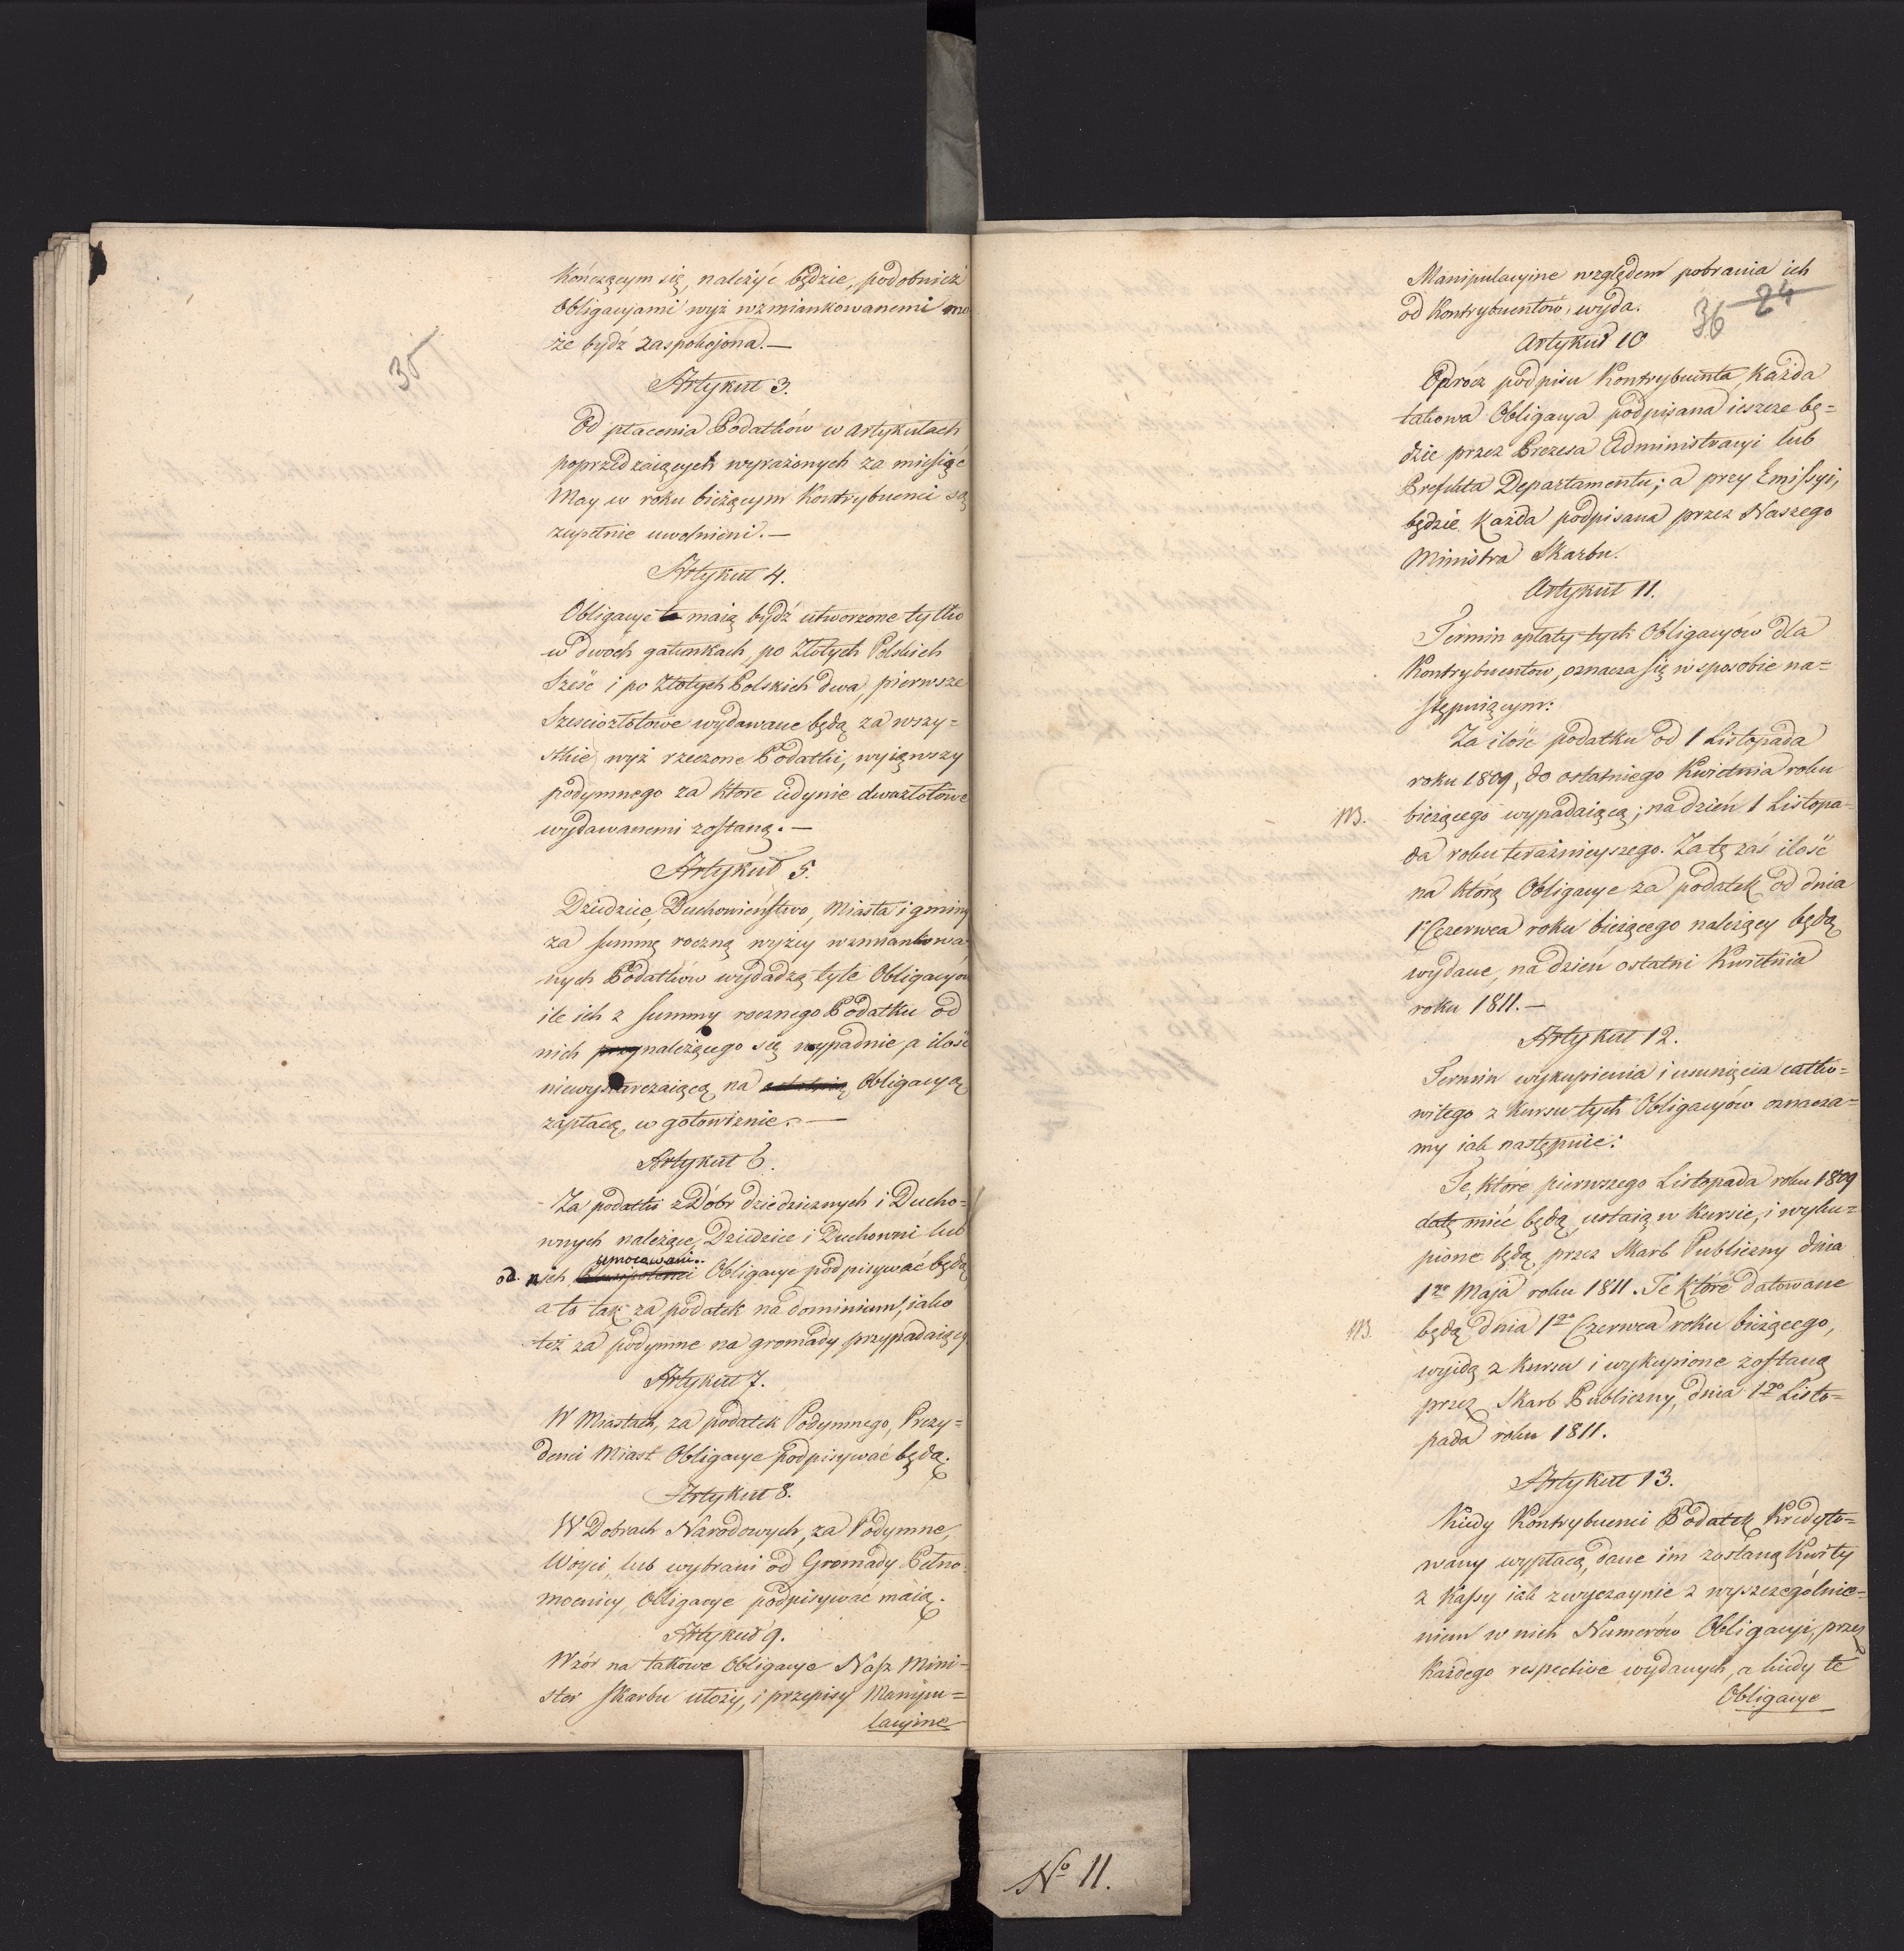 35
kończącym się, należyć będzie, podobnież
Obligacyami wyż wzmiankowanemi mo
że bydź zaspokojona.—
Artykuł 3.
Od płacenia Podatków w Artykułach
poprzedzaiących wyrażonych za miesiąc
May w roku bieżącym Kontrybuenci są
zupełnie uwolnieni.—
Artykuł 4.
Obligacye te maią bydź utworzone tylko
w dwóch gatunkach, po Złotych Polskich
Sześć i po Złotych Polskich dwa, pierwsze
Szescioztotowe wydawane będą za wszy=
stkie wyż rzeczone Podatki, wyiąwszy
podymnego za które iedynie dwazłotowe
wydawanemi zostaną.—
Artykuł 5.
Dziedzice, Duchowieństwo, Miasta i gminy
za summę roczną wyżey wzmiankowa
nych Podatków wydadzą tyle Obligacyów
ile ich z summy rocznego Podatku od
nich przynależącego się wypadnie, a ilość
niewystarczaiącą na Obligacyą
zapłacą w gotowiznie.—
Artykuł 6.
Za podatki z Dóbr dziedzicznych i Ducho=
wnych należące, Dziedzice i Duchowni lub
umocowani
od nich Obligacye podpisywać będą
a to tak za podatek na dominium, iako
też za podymne na gromady przypadaiący
Artykuł 7.
W Miastach, za podatek Podymnego, Prezy=
denci Miast Obligacye podpisywać będą.
Artykuł 8.
W Dobrach Narodowych, za Podymne,
Woyci, lub wybrani od Gromady Pełno
mocnicy, Obligacye podpisywać maią.
Artykuł 9.
Wzór na takowe Obligacye Nasz Mini=
ster Skarbu ułoży, i przepisy Manipu=
lacyine
Manipulacyine względem pobrania ich
od Kontrybuentów, wyda.
36 24
Artykuł 10
Oprócz podpisu Kontrybuenta, Każda
takowa Obligacya podpisana ieszcze bę=
dzie przez Prezesa Administracyi lub
Prefekta Departamentu; a przy Emissyi,
będzie Każda podpisana przez Naszego
Ministra Skarbu.
Artykuł 11.
Termin opłaty tych Obligacyów dla
Kontrybuentów, oznacza się w sposobie na=
stępuiącym:
Za ilość podatku od 1 Listopada
roku 1809, do ostatniego Kwietnia roku
NB. bieżącego wypadaiącą; na dzień 1 Listopa=
da roku teraźnieyszego. Za tę zaś ilość
na którą Obligacye za podatek od dnia
1º Czerwca roku bieżącego należący będą
wydane, na dzień ostatni Kwietnia
roku 1811.—
Artykuł 12.
Termin wykupienia i usunięcia całko=
witego z kursu tych Obligacyów oznacza=
my iak następnie:
Te, które pierwszego Listopada roku 1809
datę mieć będą, ustaią w kursie, i wyku=
pione będą przez Skarb Publiczny dnia
1go Maja roku 1811. Te które datowane
NB. będą dnia 1go Czerwca roku bieżącego,
wyidą z kursu i wykupione zostaną
przez Skarb Publiczny, dnia 1go Listo=
pada roku 1811.
Artykuł 13.
Kiedy Kontrybuenci Podatek Kredyto=
wany wypłacą, dane im zostaną Kwity
z Kassy iak zwyczaynie z wyszczególnie=
niem w nich Numerów Obligacyi, przez
Każdego respective wydanych, a kiedy te
Obligacye
Nº 11.